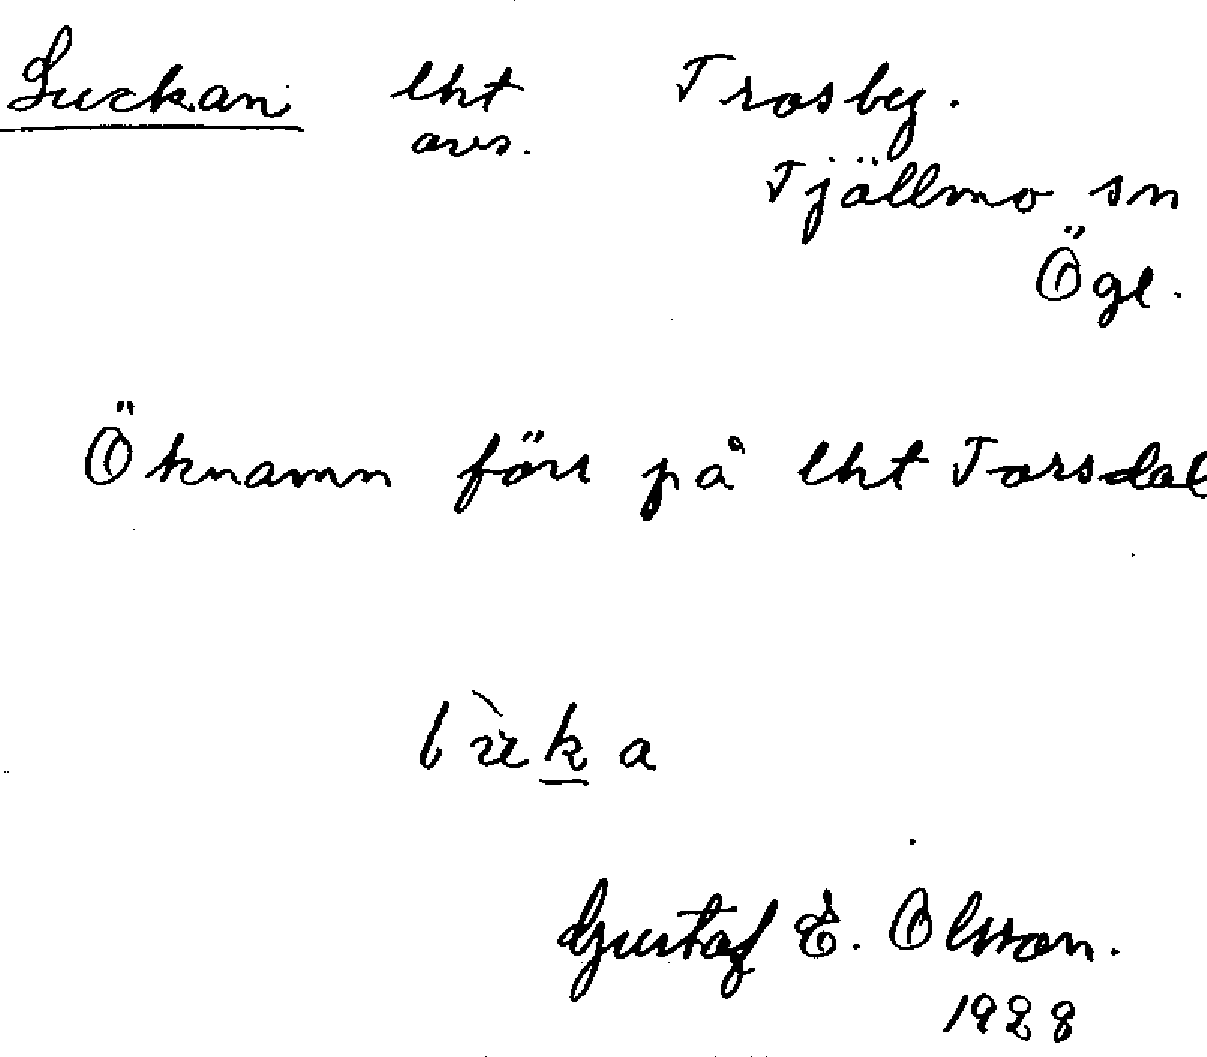 Luckan lht Trosby.
avs.
Tjällmo sn
Ögl.
Öknamn förr på lht Torsdal
1928
Gustaf E. Olsson.